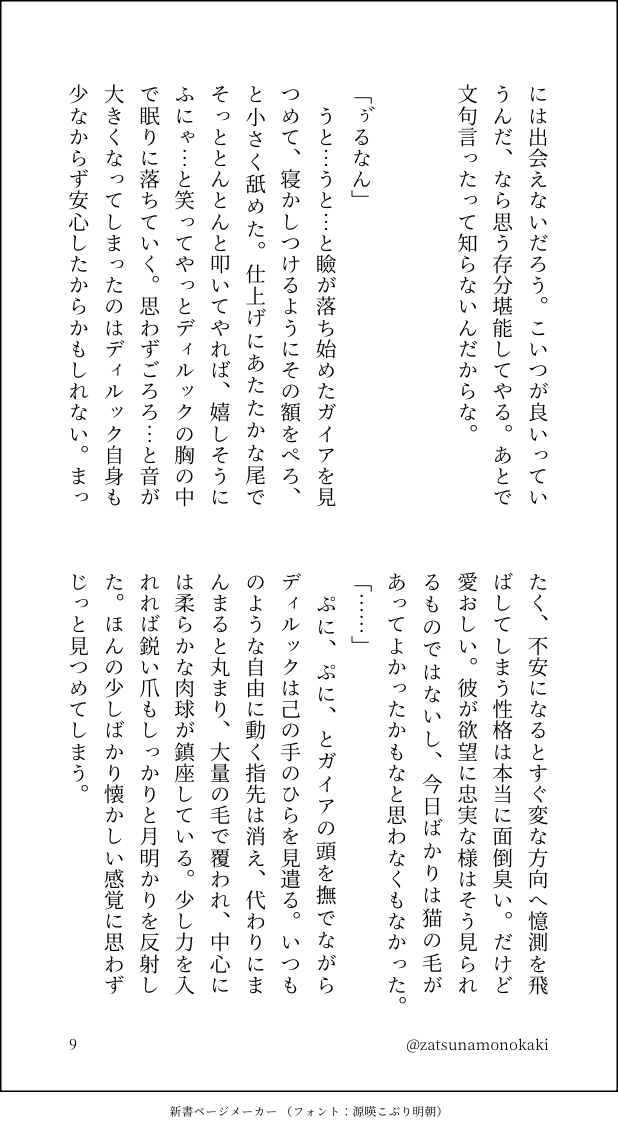 には出会えないだろう。こいつが良いってい
うんだ、なら思う存分堪能してやる。あとで
文句言ったって知らないんだからな。
「ゔるなん」
うと…うと…と瞼が落ち始めたガイアを見
つめて、寝かしつけるようにその額をぺろ、
と小さく舐めた。仕上げにあたたかな尾で
そっととんとんと叩いてやれば、嬉しそうに
ふにゃ…と笑ってやっとディルックの胸の中
で眠りに落ちていく。思わずごろろ…と音が
大きくなってしまったのはディルック自身も
少なからず安心したからかもしれない。まっ
たく、不安になるとすぐ変な方向へ憶測を飛
ばしてしまう性格は本当に面倒臭い。だけど
愛おしい。彼が欲望に忠実な様はそう見られ
るものではないし、今日ばかりは猫の毛が
あってよかったかもなと思わなくもなかった。
「……」
ぷに、ぷに、とガイアの頭を撫でながら
ディルックは己の手のひらを見遣る。いつも
のような自由に動く指先は消え、代わりにま
んまると丸まり、大量の毛で覆われ、中心に
は柔らかな肉球が鎮座している。少し力を入
れれば鋭い爪もしっかりと月明かりを反射し
た。ほんの少しばかり懐かしい感覚に思わず
じっと見つめてしまう。
9
@zatsunamonokaki
新書ページメーカー（フォント：源暎こぶり明朝）